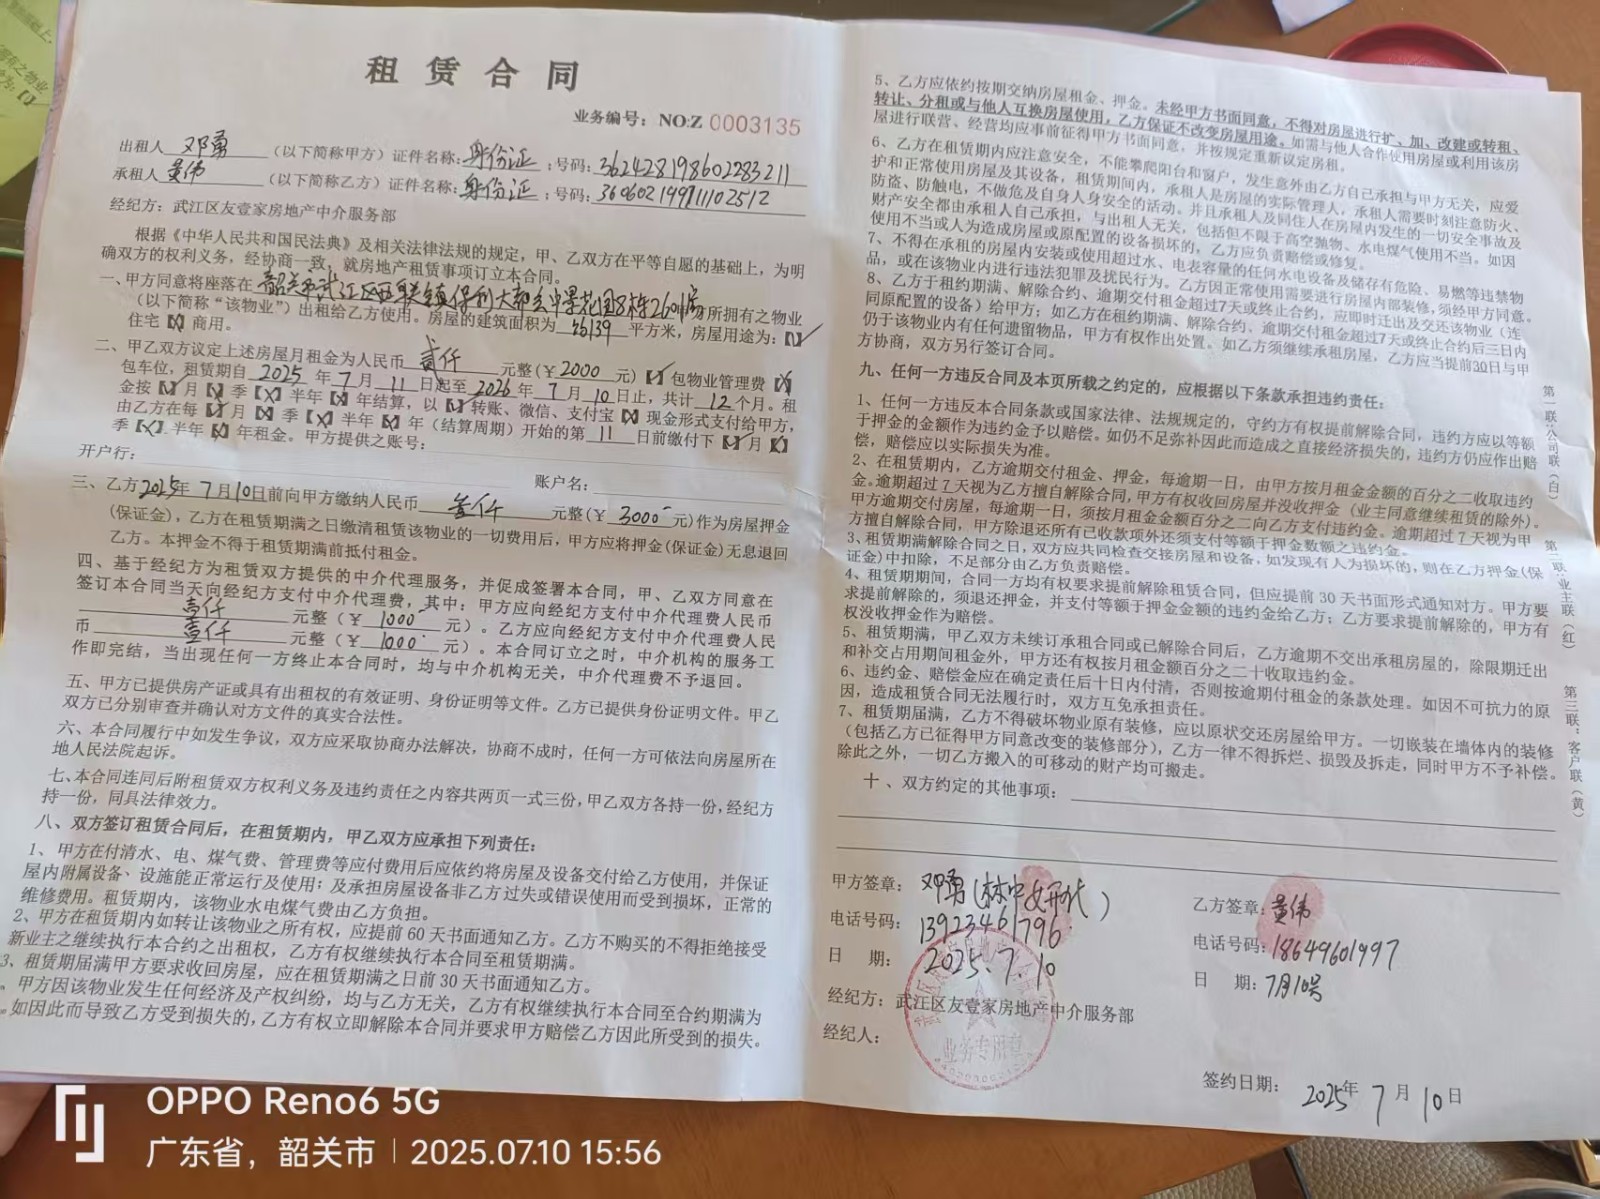 租赁合同
业务编号：NO:Z 0003135
出租人 邓勇 （以下简称甲方）证件名称：身份证：号码：362428198602283211
承租人 黄伟 （以下简称乙方）证件名称：身份证：号码：360602199111102512
经纪方：武江区友壹家房地产中介服务部
根据《中华人民共和国民法典》及相关法律法规的规定，甲、乙双方在平等自愿的基础上，为明
确双方的权利义务，经协商一致，就房地产租赁事项订立本合同。
一、甲方同意将座落在 韶关市武江区西联镇保利大都会中景花园8栋2601房 所拥有之物业
（以下简称“该物业”）出租给乙方使用。房屋的建筑面积为 平方米，房屋用途为：【✓】
住宅【X】商用。
二、甲乙双方议定上述房屋月租金为人民币 贰仟 元整（￥2000 元）【✓】包物业管理费【X】
包车位，租赁期自 2025 年 7 月 11 日起至 2026 年 7 月 10 日止，共计 12 个月。租
金按【✓】月【X】季【X】半年【X】年结算，以【✓】转账、微信、支付宝【X】现金形式支付给甲方，
由乙方在每【✓】月【X】季【X】半年【X】年（结算周期）开始的第 11 日前缴付下【✓】月【X】
季【X】半年【X】年租金。甲方提供之账号：
开户行： 账户名：
三、乙方2025年7月10日前向甲方缴纳人民币 元整（￥3000 元）作为房屋押金
（保证金），乙方在租赁期满之日缴清租赁该物业的一切费用后，甲方应将押金(保证金)无息退回
乙方。本押金不得于租赁期满前抵付租金。
四、基于经纪方为租赁双方提供的中介代理服务，并促成签署本合同，甲、乙双方同意在
签订本合同当天向经纪方支付中介代理费，其中：甲方应向经纪方支付中介代理费人民币
壹仟 元整（￥1000 元）。乙方应向经纪方支付中介代理费人民
币 壹仟 元整（￥1000 元）。本合同订立之时，中介机构的服务工
作即完结，当出现任何一方终止本合同时，均与中介机构无关，中介代理费不予退回。
五、甲方已提供房产证或具有出租权的有效证明、身份证明等文件。乙方已提供身份证明文件。甲乙
双方已分别审查并确认对方文件的真实合法性。
六、本合同履行中如发生争议，双方应采取协商办法解决，协商不成时，任何一方可依法向房屋所在
地人民法院起诉。
七、本合同连同后附租赁双方权利义务及违约责任之内容共两页一式三份，甲乙双方各持一份，经纪方
持一份，同具法律效力。
八、双方签订租赁合同后，在租赁期内，甲乙双方应承担下列责任：
1、甲方在付清水、电、煤气费、管理费等应付费用后应依约将房屋及设备交付给乙方使用，并保证
屋内附属设备、设施能正常运行及使用；及承担房屋设备非乙方过失或错误使用而受到损坏，正常的
维修费用。租赁期内，该物业水电煤气费由乙方负担。
2、甲方在租赁期内如转让该物业之所有权，应提前60天书面通知乙方。乙方不购买的不得拒绝接受
新业主之继续执行本合约之出租权，乙方有权继续执行本合同至租赁期满。
3、租赁期届满甲方要求收回房屋，应在租赁期满之日前30天书面通知乙方。
、甲方因该物业发生任何经济及产权纠纷，均与乙方无关，乙方有权继续执行本合同至合约期满为
。如因此而导致乙方受到损失的，乙方有权立即解除本合同并要求甲方赔偿乙方因此所受到的损失。
5、乙方应依约按期交纳房屋租金、押金。未经甲方书面同意，不得对房屋进行扩、加、改建或转租、
转让、分租或与他人互换房屋使用，乙方保证不改变房屋用途。如需与他人合作使用房屋或利用该房
屋进行联营、经营均应事前征得甲方书面同意，并按规定重新议定房租。
6、乙方在租赁期内应注意安全，不能攀爬阳台和窗户，发生意外由乙方自己承担与甲方无关，应爱
护和正常使用房屋及其设备，租赁期间内，承租人是房屋的实际管理人，承租人需要时刻注意防火、
防盗、防触电，不做危及自身人身安全的活动。并且承租人及同住人在房屋内发生的一切安全事故及
财产安全都由承租人自己承担，与出租人无关，包括但不限于高空抛物、水电煤气使用不当。如因
使用不当或人为造成房屋或原配置的设备损坏的，乙方应负责赔偿或修复。
7、不得在承租的房屋内安装或使用超过水、电表容量的任何水电设备及储存有危险、易燃等违禁物
品，或在该物业内进行违法犯罪及扰民行为。乙方因正常使用需要进行房屋内部装修，须经甲方同意。
8、乙方于租赁期满、解除合约、逾期交付租金超过7天或终止合约，应即时迁出及交还该物业（连
同原配置的设备）给甲方；如乙方在租约期满、解除合约、逾期交付租金超过7天或终止合约后三日内
仍于该物业内有任何遗留物品，甲方有权作出处置。如乙方须继续承租房屋，乙方应当提前30日与甲
方协商，双方另行签订合同。
九、任何一方违反合同及本页所载之约定的，应根据以下条款承担违约责任：
1、任何一方违反本合同条款或国家法律、法规规定的，守约方有权提前解除合同，违约方应以等额
于押金的金额作为违约金予以赔偿。如仍不足弥补因此而造成之直接经济损失的，违约方仍应作出赔
偿，赔偿应以实际损失为准。
2、在租赁期内，乙方逾期交付租金、押金，每逾期一日，由甲方按月租金金额的百分之二收取违约
金。逾期超过7天视为乙方擅自解除合同，甲方有权收回房屋并没收押金（业主同意继续租赁的除外)。
甲方逾期交付房屋，每逾期一日，须按月租金金额百分之二向乙方支付违约金。逾期超过7天视为甲
方擅自解除合同，甲方除退还所有已收款项外还须支付等额于押金数额之违约金。
3、租赁期满解除合同之日，双方应共同检查交接房屋和设备，如发现有人为损坏的，则在乙方押金(保
证金)中扣除，不足部分由乙方负责赔偿。
4、租赁期期间，合同一方均有权要求提前解除租赁合同，但应提前30天书面形式通知对方。甲方要
求提前解除的，须退还押金，并支付等额于押金金额的违约金给乙方；乙方要求提前解除的，甲方有
权没收押金作为赔偿。
5、租赁期满，甲乙双方未续订承租合同或已解除合同后，乙方逾期不交出承租房屋的，除限期迁出
和补交占用期间租金外，甲方还有权按月租金额百分之二十收取违约金。
6、违约金、赔偿金应在确定责任后十日内付清，否则按逾期付租金的条款处理。如因不可抗力的原
因，造成租赁合同无法履行时，双方互免承担责任。
7、租赁期届满，乙方不得破坏物业原有装修，应以原状交还房屋给甲方。一切嵌装在墙体内的装修
（包括乙方已征得甲方同意改变的装修部分），乙方一律不得拆烂、损毁及拆走，同时甲方不予补偿。
除此之外，一切乙方搬入的可移动的财产均可搬走。
十、双方约定的其他事项：
甲方签章：邓勇
电话号码：13923461796
日 期：2025.7.10
乙方签章：黄伟
电话号码：18649601997
日 期：7月10号
经纪方：武江区友壹家房地产中介服务部
经纪人：
业务专用章
签约日期：2025年7月10日
第一联：公司联（白）
第二联：业主联（红）
第三联：客户联（黄）
OPPO Reno6 5G
广东省，韶关市 | 2025.07.10 15:56